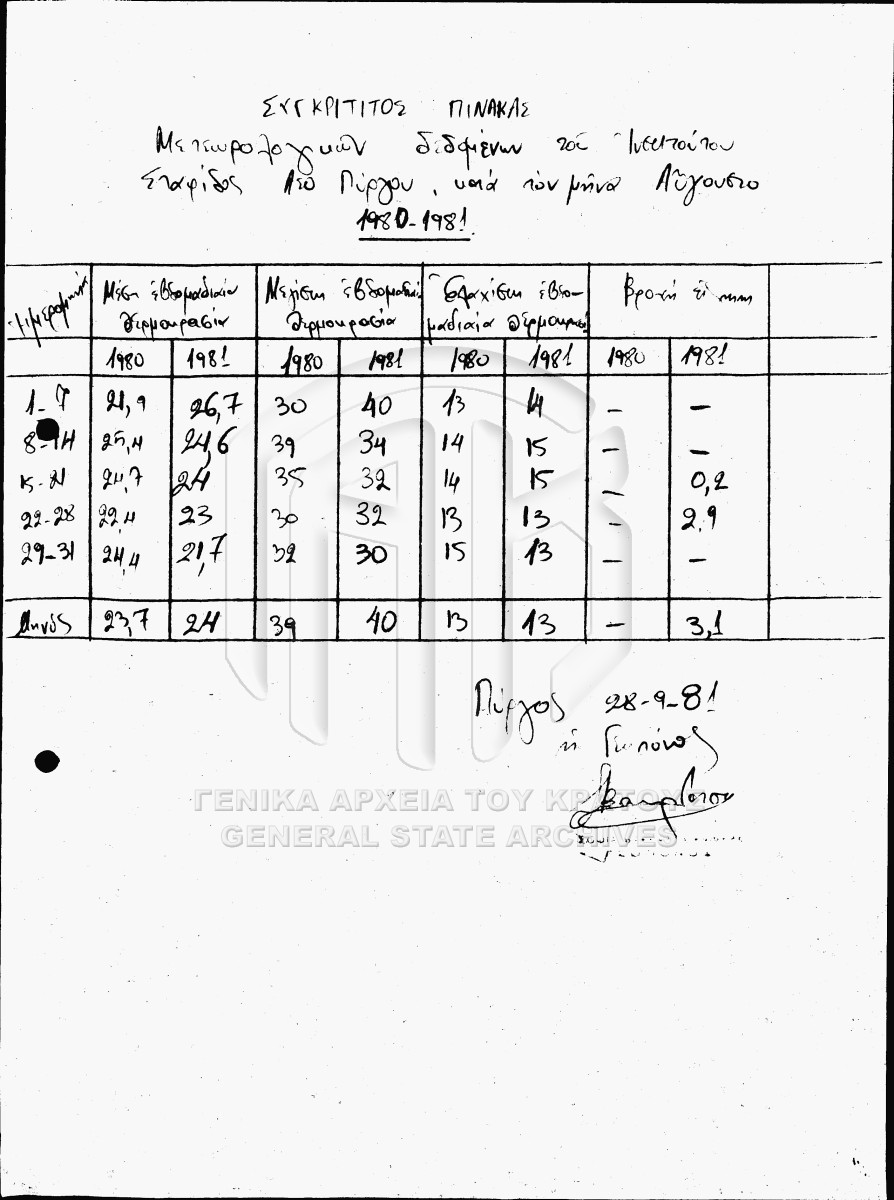 ΣΥΓΚΡΙΤΙΤΟΣ ΠΙΝΑΚΑΣ
Μετεωρολογικῶν δεδομένων τοῦ Ἰνστιτούτου
Σταφίδος Πύργου, κατά τόν μῆνα Αὔγουστο
1980-1981.
Μέση ἑβδομαδιαία Μεγίστη ἑβδομαδιαία Ἐλαχίστη ἑβδο- Βροχή
θερμοκρασία θερμοκρασία μαδιαία θερμοκρασί
1980 1981 1980 1981 1980 1981 1980 1981
1-7 21,9 26,7 30 40 13 14 – –
8-14 25,4 24,6 39 34 14 15 – –
15-21 24,7 24 35 32 14 15 – 0,2
22-28 22,4 23 30 32 13 13 – 2,9
29-31 24,4 21,7 32 30 15 13 – –
Μηνός 23,7 24 39 40 13 13 – 3,1
Πύργος 28-9-81
ΓΕΝΙΚΑ ΑΡΧΕΙΑ ΤΟΥ ΚΡΑΤΟΥΣ
GENERAL STATE ARCHIVES